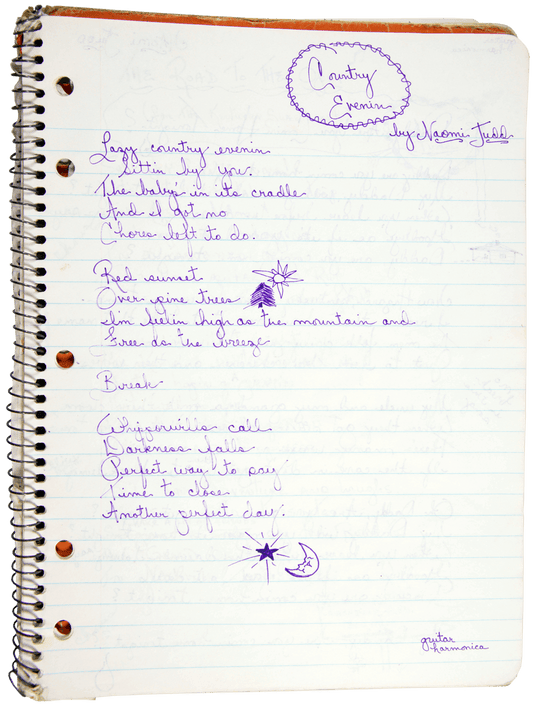 Country
Evenin
by Naomi Judd
Lazy country evenin
Sittin by you.
The baby's in it's cradle
And I got no
Chores left to do.
Red sunset
Over pine trees
I'm feelin high as the mountain and
Free as the breeze
Break
Whipporwills call
Darkness falls
Perfect way to say
Time to close
Another perfect day.
guitar
harmonica